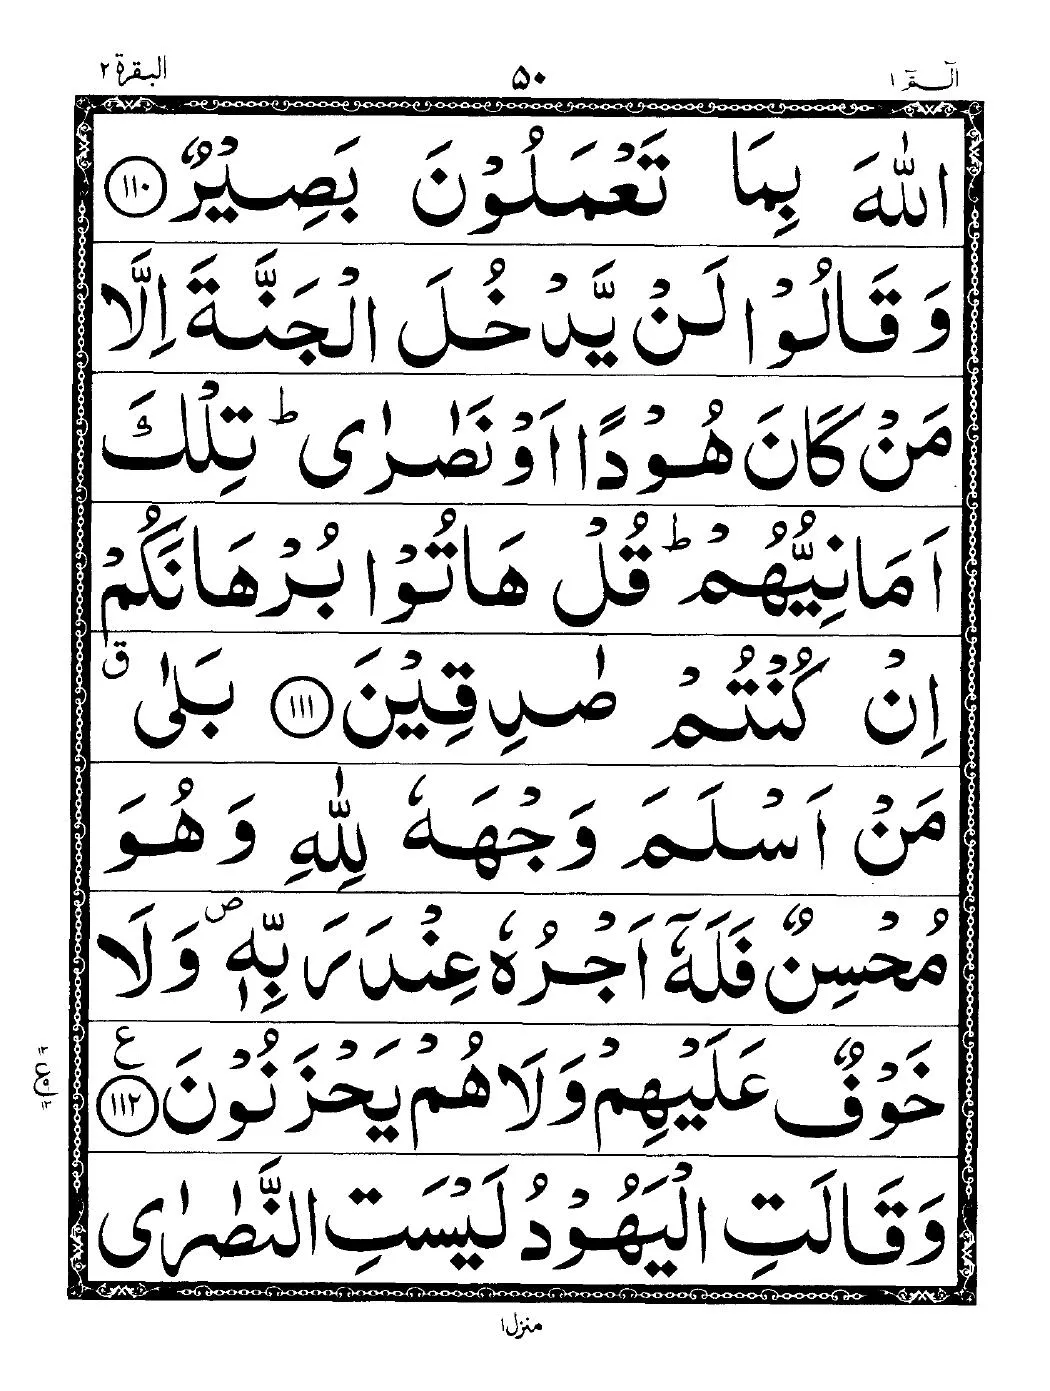 الٓـمّٓ ١ ٥٠ البقرة ٢
اللّٰهَ بِمَا تَعْمَلُوْنَ بَصِيْرٌ ١١٠
وَقَالُوْا لَنْ يَّدْخُلَ الْجَنَّةَ اِلَّا
مَنْ كَانَ هُوْدًا اَوْ نَصٰرٰى ؕ تِلْكَ
اَمَانِيُّهُمْ ؕ قُلْ هَاتُوْا بُرْهَانَكُمْ
اِنْ كُنْتُمْ صٰدِقِيْنَ ١١١ بَلٰى ق
مَنْ اَسْلَمَ وَجْهَهٗ لِلّٰهِ وَهُوَ
مُحْسِنٌ فَلَهٗۤ اَجْرُهٗ عِنْدَ رَبِّهٖ ص وَلَا
خَوْفٌ عَلَيْهِمْ وَلَا هُمْ يَحْزَنُوْنَ ع ١١٢
وَقَالَتِ الْيَهُوْدُ لَيْسَتِ النَّصٰرٰى
منزل ١